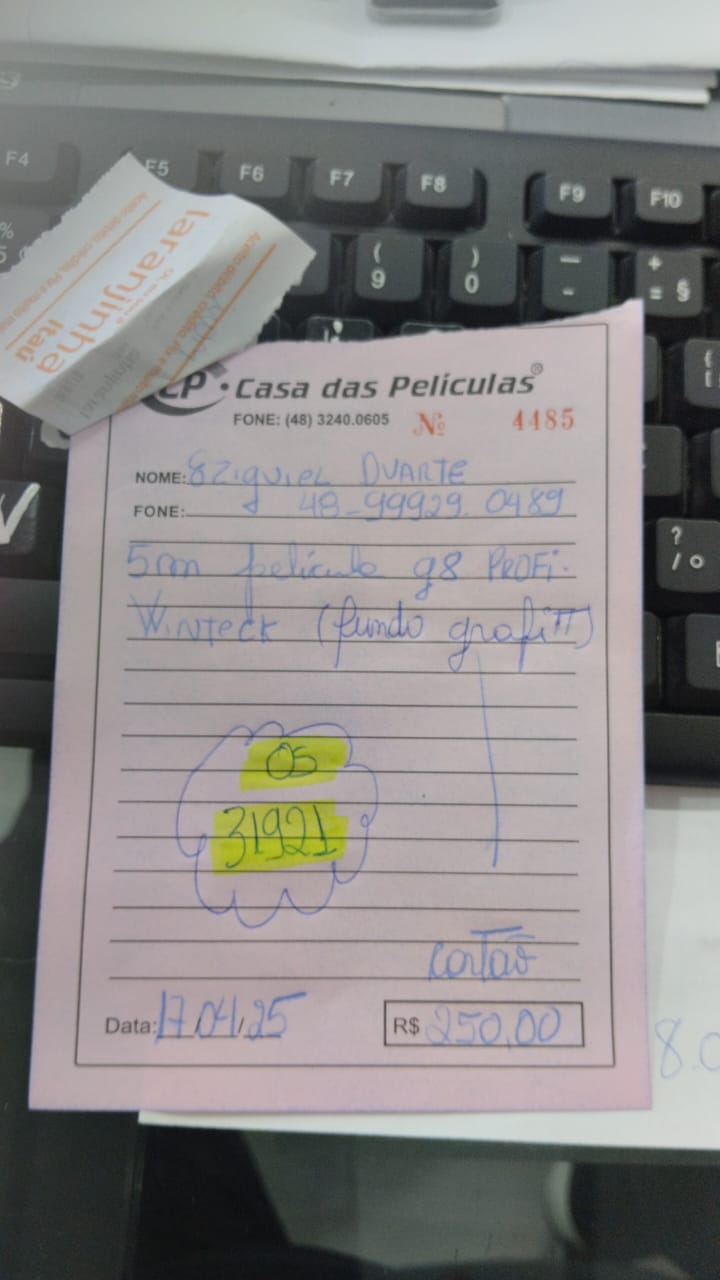 F4
F5
F6
F7
F8
F9
F10
%
5
(
9
)
0
—
-
+
= §
?
/ °
Aceito débito, crédito, Pix e muito mais
laranjinha
itaú
CP
Casa das Películas®
FONE: (48) 3240.0605
Nº 4485
NOME: Eziguiel DUARTE
FONE: 48-99929.0489
5m película g8 PROFi.
WINTECK (fundo grafiTT)
OS
31921
cartão
Data: 17/04/25
R$ 250,00
8.0